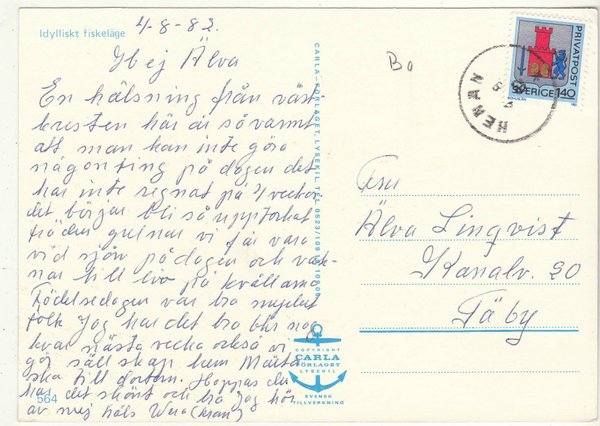 Idylliskt fiskeläge
4-8-82.
Hej Älva
En hälsning från väst
kusten här är så varmt
att man kan inte göra
någonting på dagen det
har inte regnat på 4 veckor
det börjar bli så upptorkat
träden gulnar vi får vara
vid sjön på dagen och vak-
nar till liv på kvällarna
Födelsedagen var bra mycket
folk Jag har det bra blir nog
kvar nästa vecka också vi
gör sällskap hem Märta
ska till doktorn. Hoppas du
har det skönt och bra Jag hör
av mej häls
564
CARLA-FÖRLAGET, LYSEKIL, TEL. 0523/109
COPYRIGHT
CARLA
FÖRLAGET
LYSEKIL
SVENSK
TILLVERKNING
Bo
HENÅN
PRIVATPOST
SVERIGE 140
Fru
Älva Linqvist
Kanalv. 20
Täby